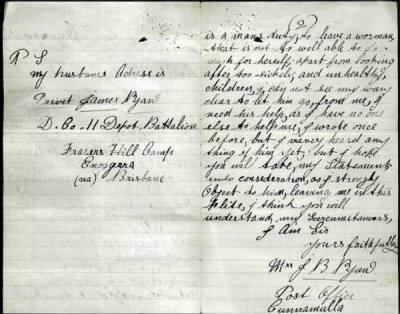 P S
my husbands Adress is
Privet James Ryan
D. Co 11 Depot, Battalion
Frasers Hill Camp
Enoggera
(via) Brisbane
2
is a mans duty, to leave a woman,
that is not so well able to do
much for herself, apart from looking
after two sickly and unhealthy,
children, I cdnt see my way
clear to let him go, from me, I
need his help, as I have no one
else to help me, I wrote once
before, but I never heard any
thing of him yet, but I hope
you will take, my Statement
into consideration, as I strongly
Object to him, leaving me in this
Plite, I think you will
understand my Circumstances,
I Am Sir
yours faithfully
Mrs J B Ryan
Post Office
Cunnamulla